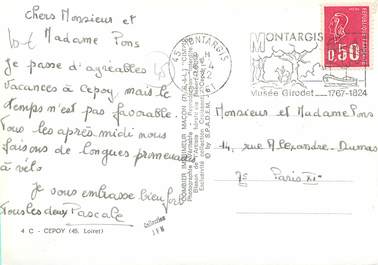 Chers Monsieur et
Madame Pons
Je passe d'agréables
vacances à Cepoy, mais le
temps n'est pas favorable.
Tous les après midi nous
faisons de longues promenades
à vélo
Je vous embrasse bien fort
Tous les deux Pascale
4 C - CEPOY (45. Loiret)
COMBIER IMPRIMEUR MACON
© by S.P.A.D.E.M.
45 MONTARGIS
MONTARGIS
Musée Girodet 1767-1824
0,50
Monsieur et Madame Pons
14, rue Alexandre-Dumas
75 Paris XI
Collection